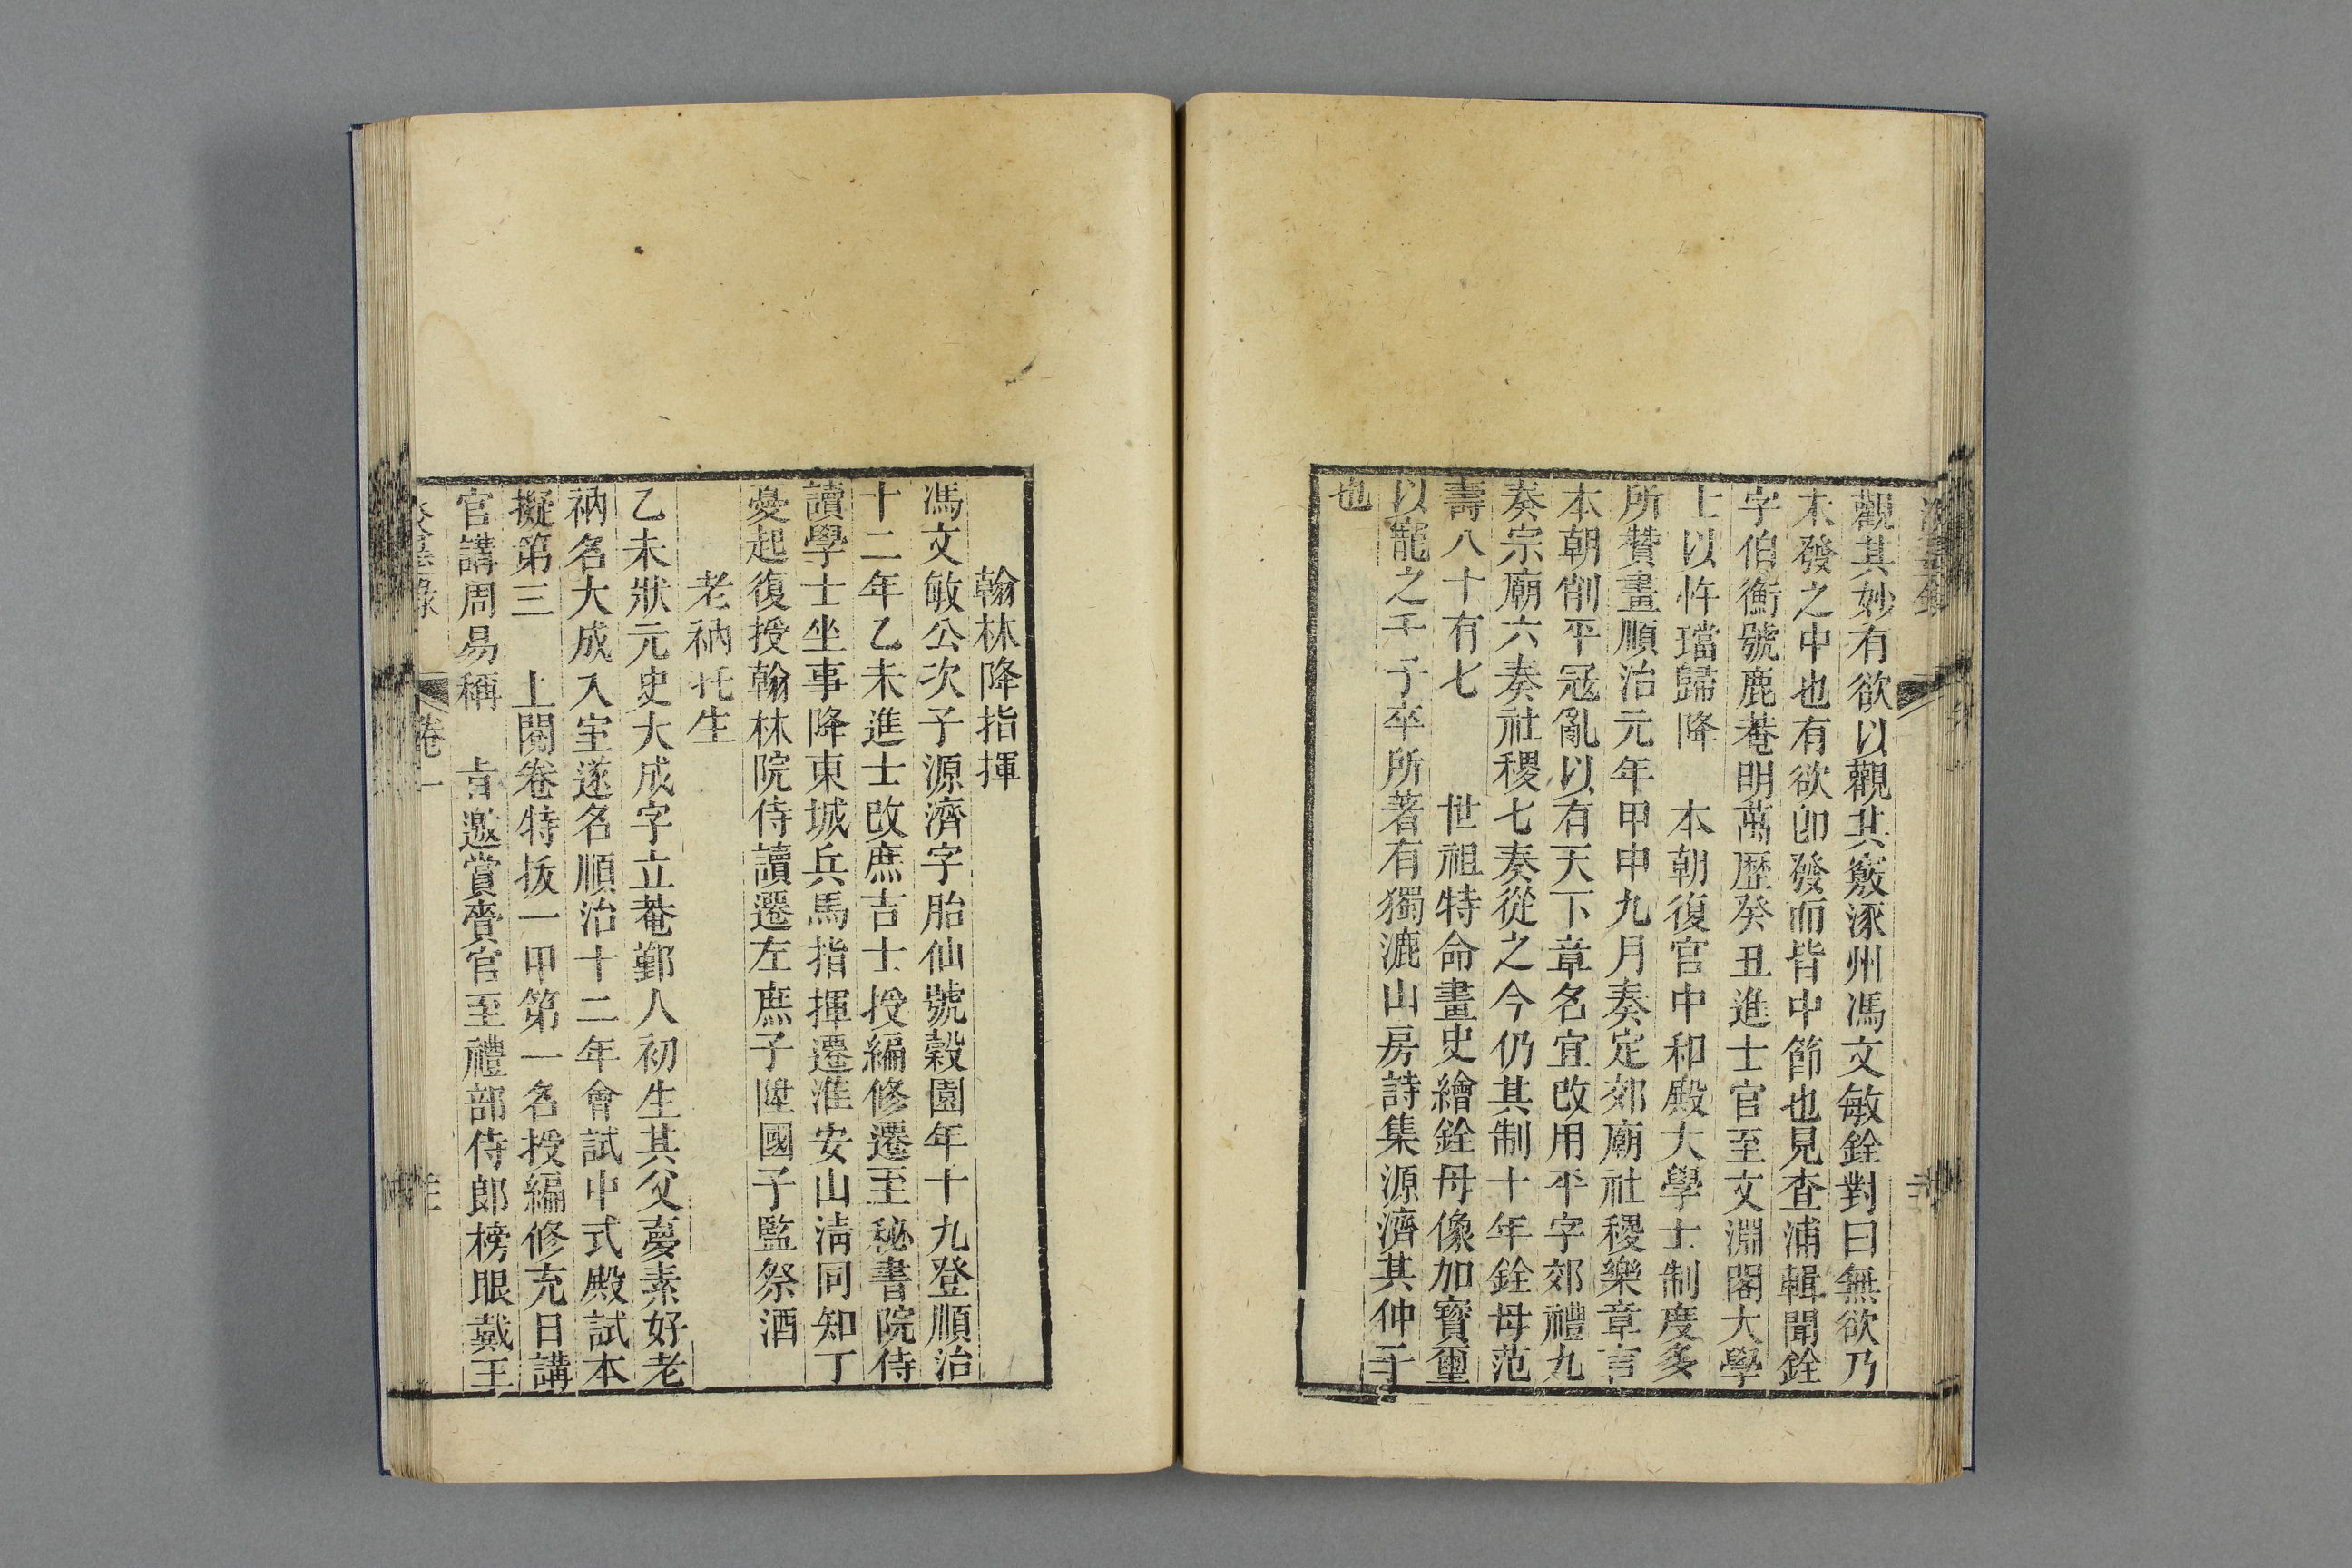 觀其妙有欲以觀其竅涿州馮文敏銓對曰無欲乃
未發之中也有欲卽發而皆中節也見查浦輯聞銓
字伯衡號鹿菴明萬歷癸丑進士官至文淵閣大學
士以忤璫歸降 本朝復官中和殿大學士制度多
所贊畫順治元年甲申九月奏定郊廟社稷樂章言
本朝削平寇亂以有天下章名宜改用平字郊禮九
奏宗廟六奏社稷七奏從之今仍其制十年銓母范
壽八十有七 世祖特命畫史繪銓母像加寶璽
以寵之壬子卒所著有獨漉山房詩集源濟其仲子
也
翰林降指揮
馮文敏公次子源濟字胎仙號榖園年十九登順治
十二年乙未進士改庶吉士授編修遷至秘書院侍
讀學士坐事降東城兵馬指揮遷淮安山淸同知丁
憂起復授翰林院侍讀遷左庶子陞國子監祭酒
老衲托生
乙未狀元史大成字立菴鄞人初生其父夢素好老
衲名大成入室遂名順治十二年會試中式殿試本
擬第三 上閱卷特拔一甲第一名授編修充日講
官講周易稱 旨邀賞賚官至禮部侍郎榜眼戴王
卷一